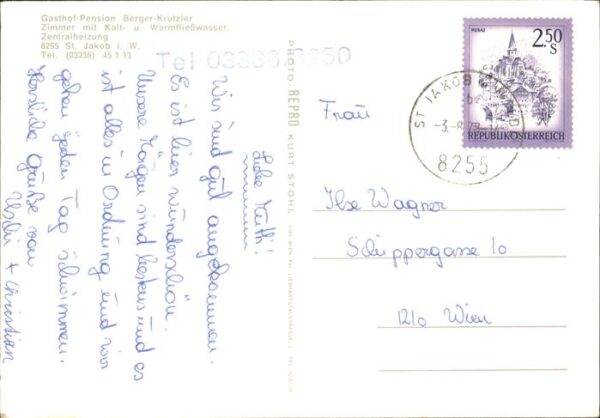 Gasthof-Pension Berger-Krutzler
Zimmer mit Kalt- u. Warmfließwasser,
Zentralheizung
8255 St. Jakob i. W.
Tel. (03336) 45 1 13
Tel 03336/8250
Liebe Mutti!
Wir sind gut angekommen.
Es ist hier wunderschön.
Unsere Mägen sind bestens und es
ist alles in Ordnung und wir
gehen jeden Tag schwimmen.
Herzliche Grüße von
Uschi + Christian
PHOTO REPRO KURT STOHL
Frau
Ilse Wagner
Schippergasse 10
1210 Wien
MURAU
2.50
S
REPUBLIK ÖSTERREICH
ST. JAKOB
-3.-8.78
8255